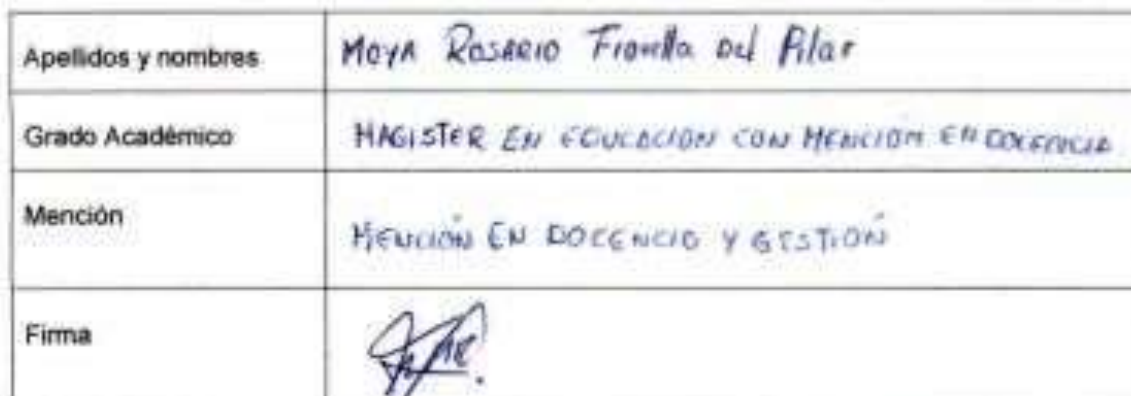 Apellidos y nombres MOYA ROSARIO Fiorella Del Pilar
Grado Académico MAGISTER EN EDUCACION CON MENCIÓN EN DOCENCIA
Mención MENCIÓN EN DOCENCIA Y GESTIÓN
Firma